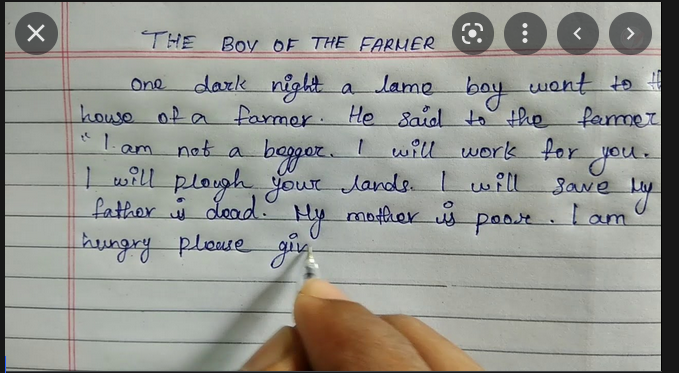 THE BOY OF THE FARMER
One dark night a lame boy went to th
house of a farmer. He said to the farmer
"I am not a beggar. I will work for you.
I will plough your lands. I will save My
father is dead. My mother is poor. I am
hungry please giv